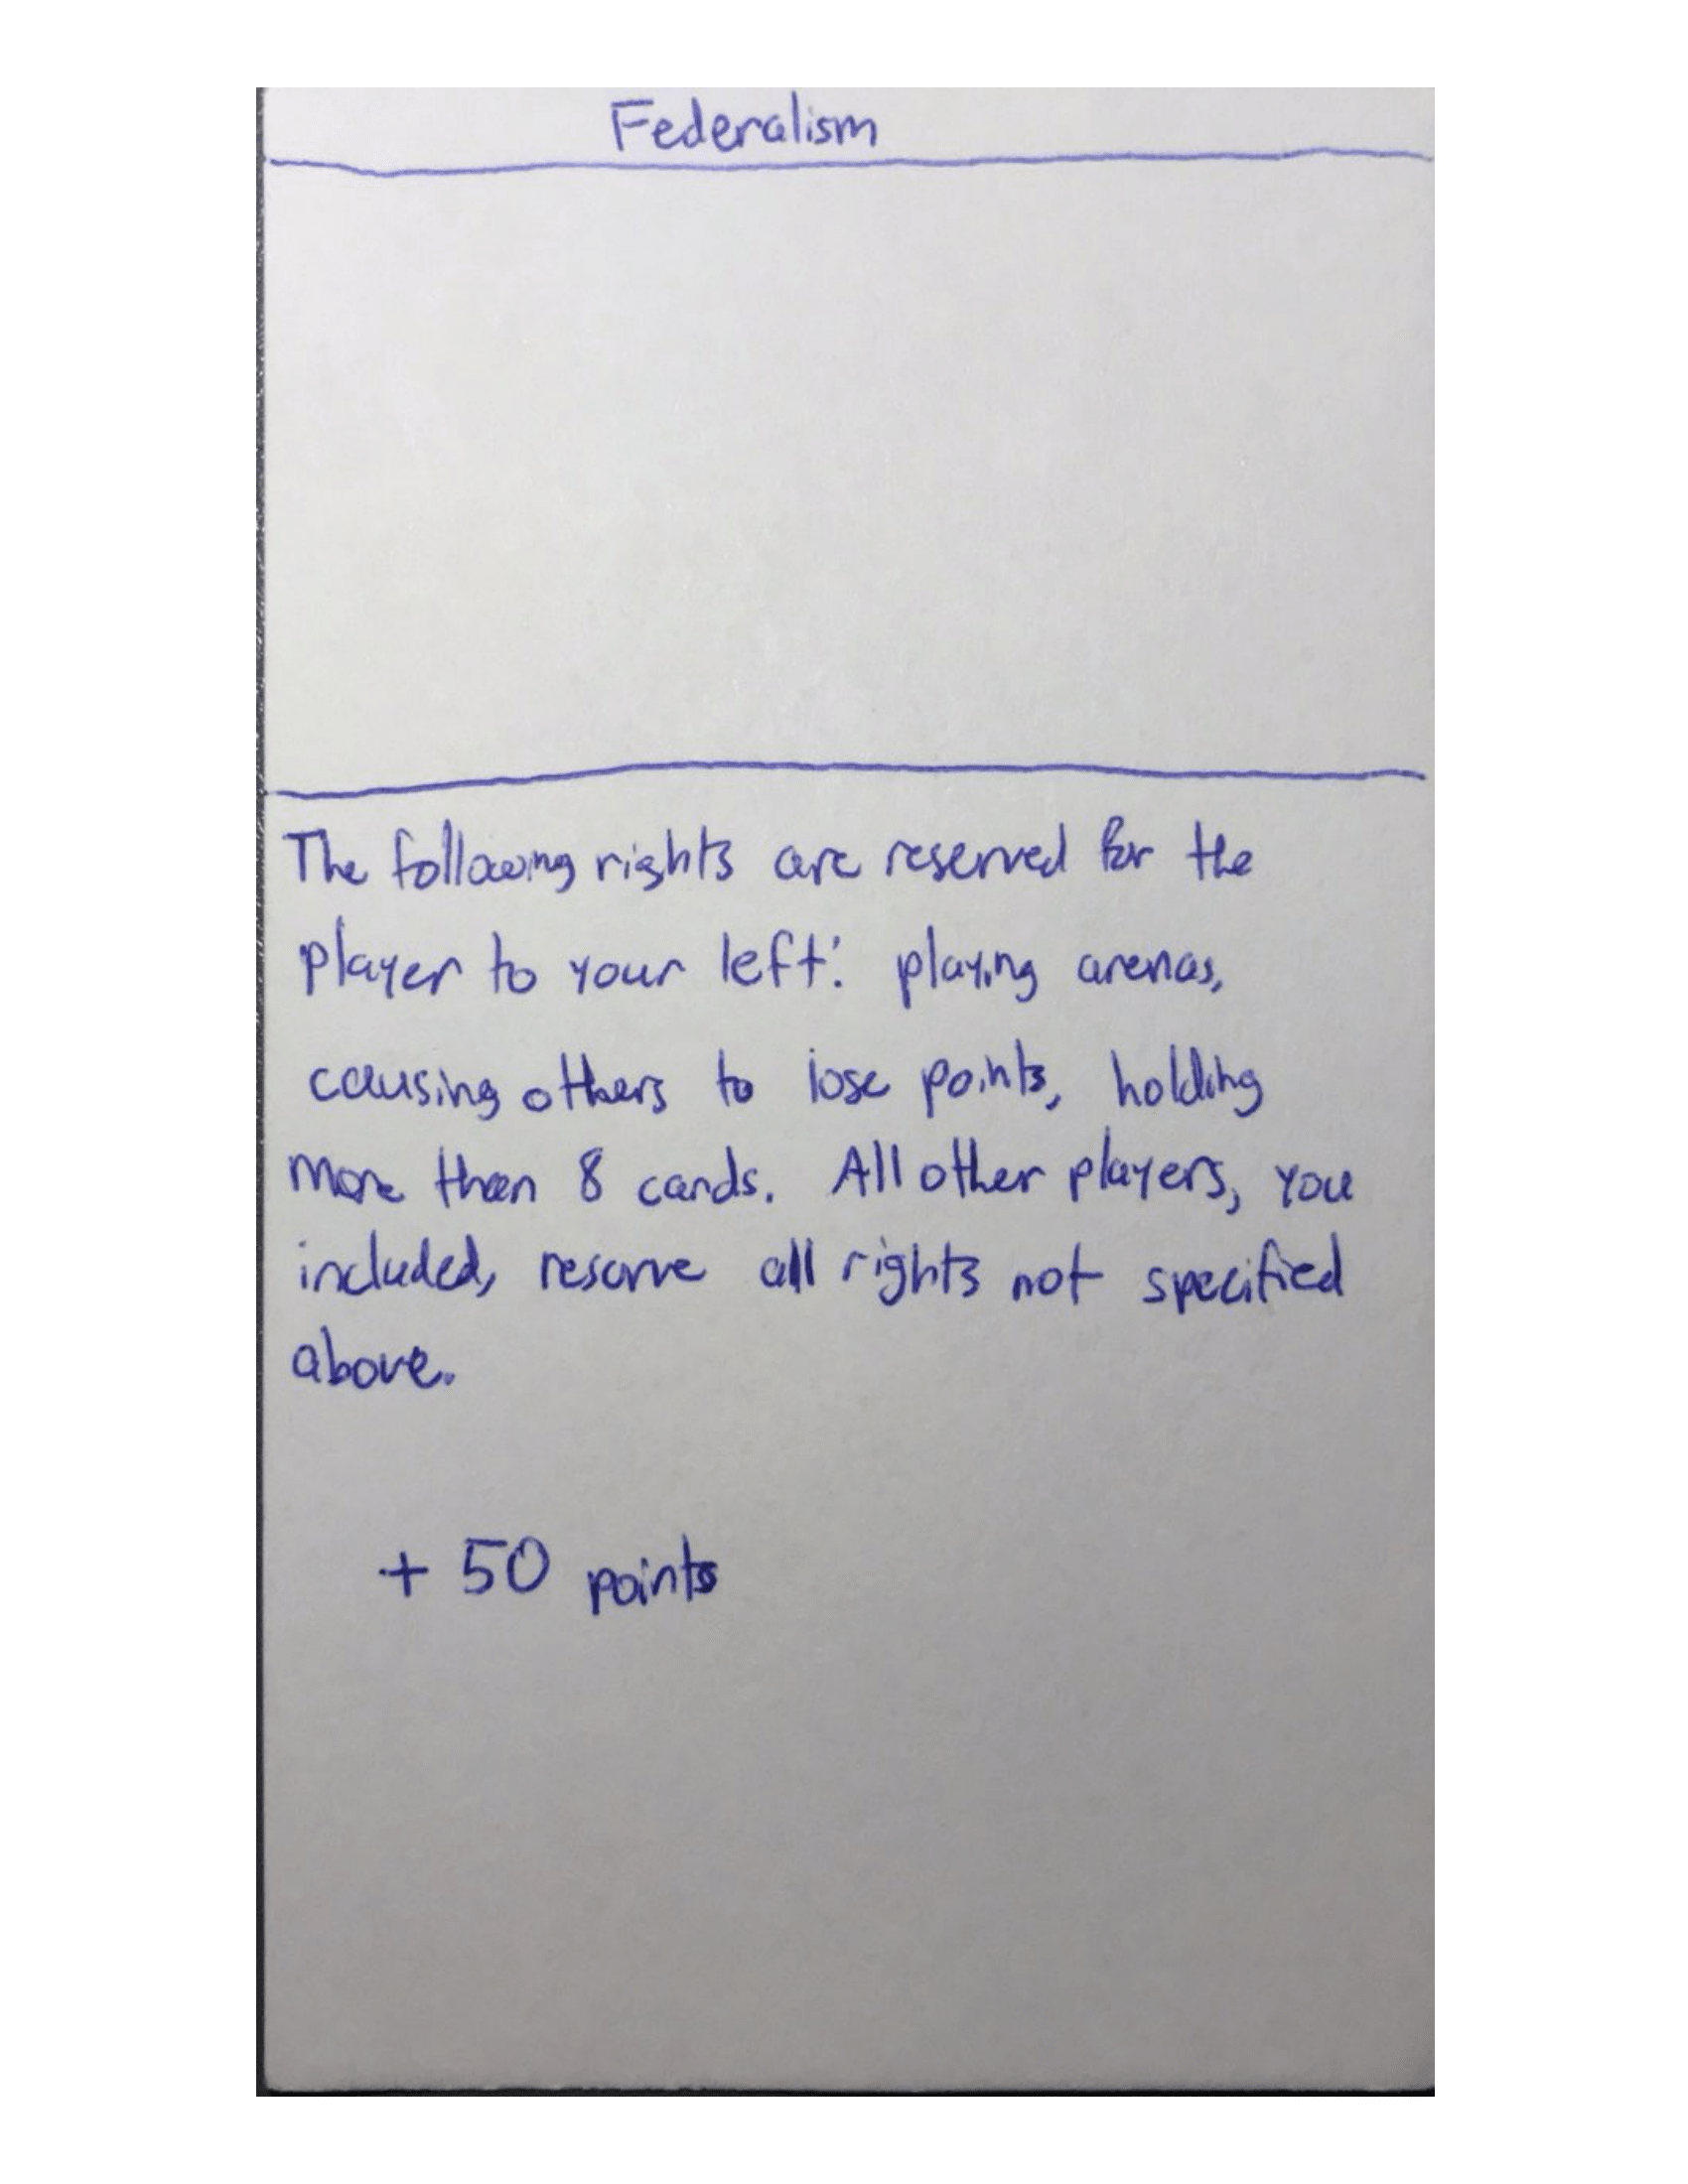 Federalism
The following rights are reserved for the
player to your left: playing arenas,
causing others to lose points, holding
more than 8 cards. All other players, you
included, reserve all rights not specified
above.
+ 50 points